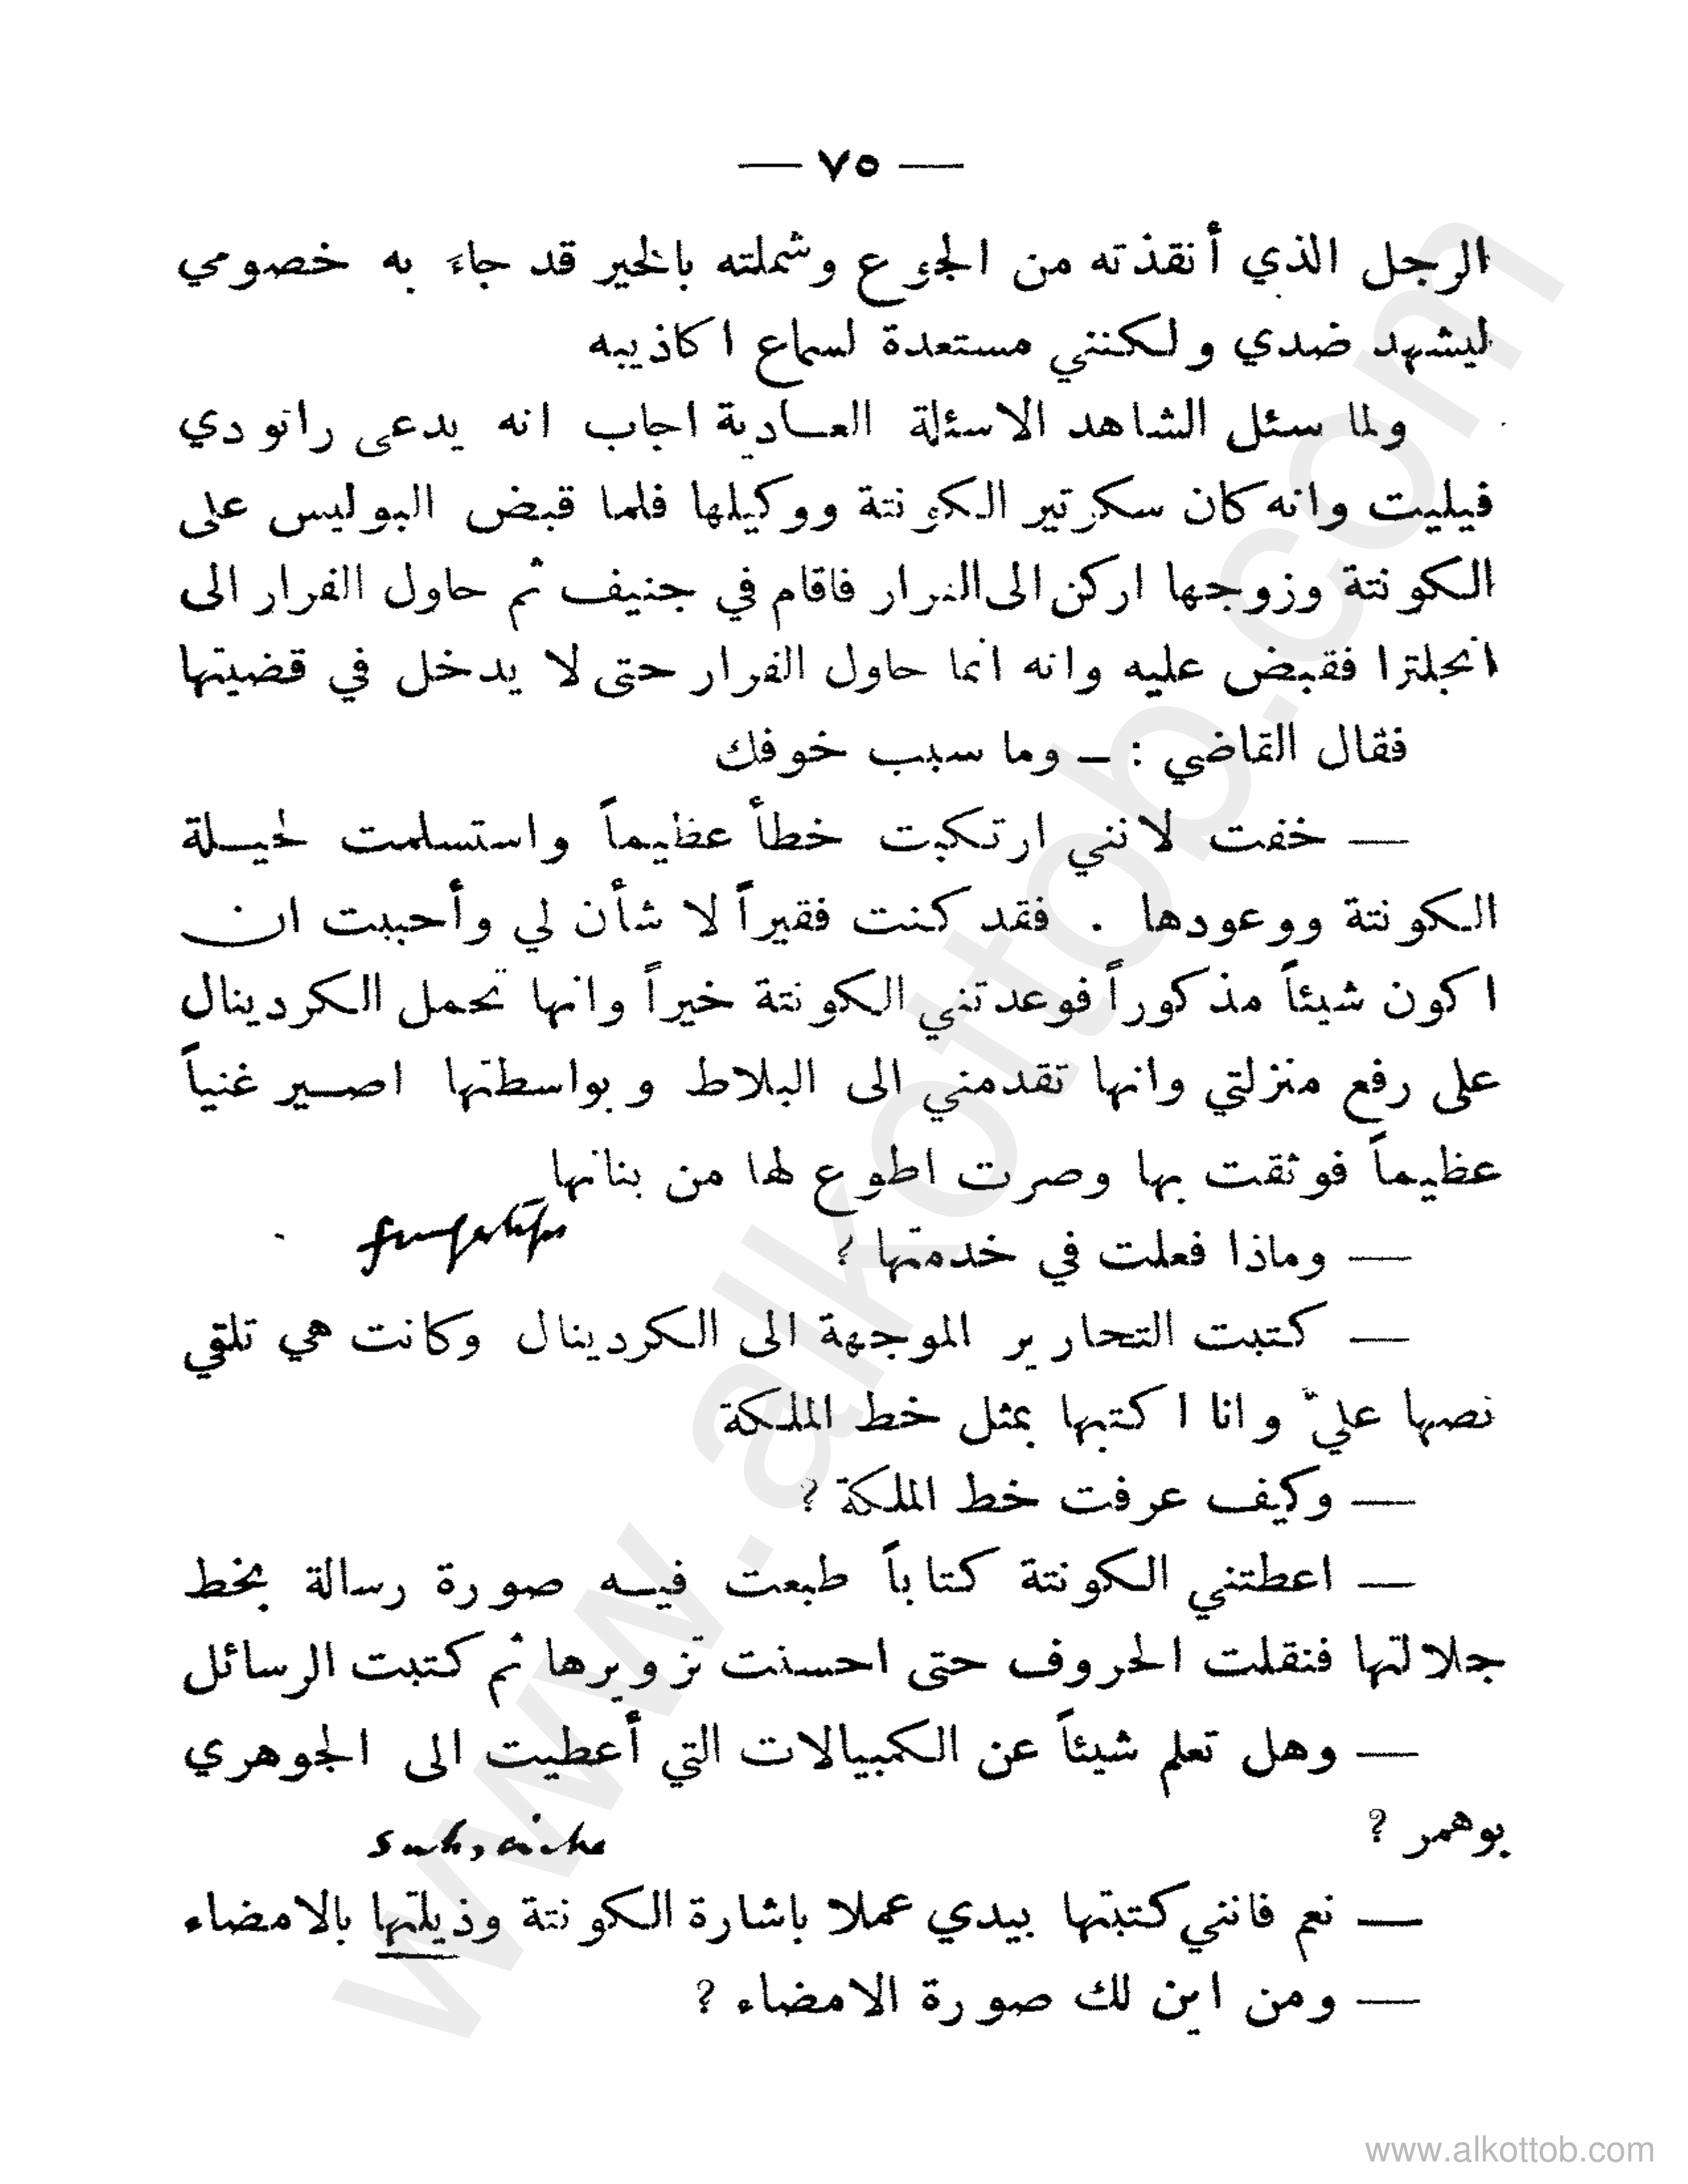 — ٧٥ —
الرجل الذي أنقذته من الجوع وشملته بالخير قد جاءَ به خصومي
ليشهد ضدي ولكنني مستعدة لسماع اكاذيبه
ولما سئل الشاهد الاسئلة العادية اجاب انه يدعى راتودي
فيليت وانه كان سكرتير الكونتة ووكيلها فلما قبض البوليس على
الكونتة وزوجها اركن الى الفرار فاقام في جنيف ثم حاول الفرار الى
انجلترا فقبض عليه وانه انما حاول الفرار حتى لا يدخل في قضيتها
فقال القاضي : — وما سبب خوفك
— خفت لانني ارتكبت خطأ عظيماً واستسلمت لحيلة
الكونتة ووعودها . فقد كنت فقيراً لا شأن لي وأحببت ان
اكون شيئاً مذكوراً فوعدتني الكونتة خيراً وانها تحمل الكردينال
على رفع منزلتي وانها تقدمني الى البلاط وبواسطتها اصير غنياً
عظيماً فوثقت بها وصرت اطوع لها من بنانها
— وماذا فعلت في خدمتها ؟
— كتبت التحارير الموجهة الى الكردينال وكانت هي تلقي
نصها عليّ وانا اكتبها بمثل خط الملكة
— وكيف عرفت خط الملكة ؟
— اعطتني الكونتة كتاباً طبعت فيه صورة رسالة بخط
جلالتها فنقلت الحروف حتى احسنت تزويرها ثم كتبت الرسائل
— وهل تعلم شيئاً عن الكمبيالات التي أعطيت الى الجوهري
بوهمر ؟
— نعم فانني كتبتها بيدي عملا باشارة الكونتة وذيلتها بالامضاء
— ومن اين لك صورة الامضاء ؟
www.alkottob.com
www.alkottob.com